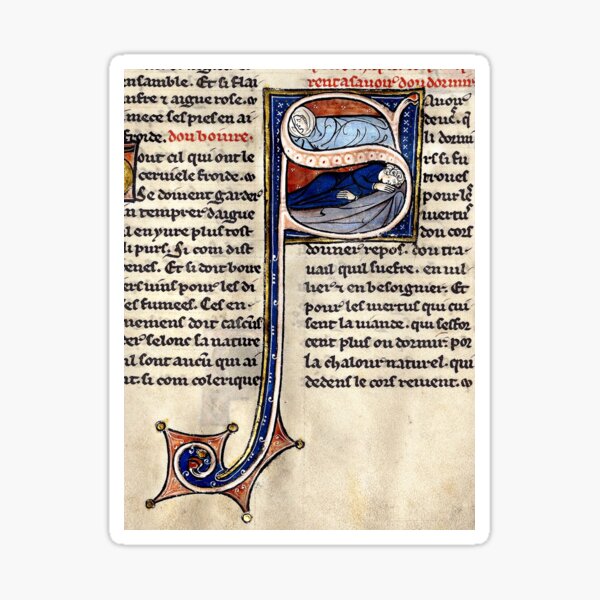 nsamble. Et si flai
nfre & aigue rose.
mece ses pies en ai
froide. dou boiure.
out cil qui ont le
ceruiele froide.
Se doiuent garder
n temprer daigue
il enyure plus tost
li purs. Si com dist
enes. Et si doit boiure
rs uins pour les di
es fumees. Ces en
nemens doit cascuns
er selonc sa nature
il sont aucun qui ai
nt. si com colerique
rent a sauoir dou dormir
Auoir
deues. q
li dormi
rs si fu
trouues
pour les
uertus
dou cors
donner repos. dou tra
uail quil suefre. en uil
lier & en besoignier. Et
pour les uertus qui cui
sent la uiande. qui sesfor
cent plus ou dormir. por
la chalour naturel. qui
dedens le cors reuient.